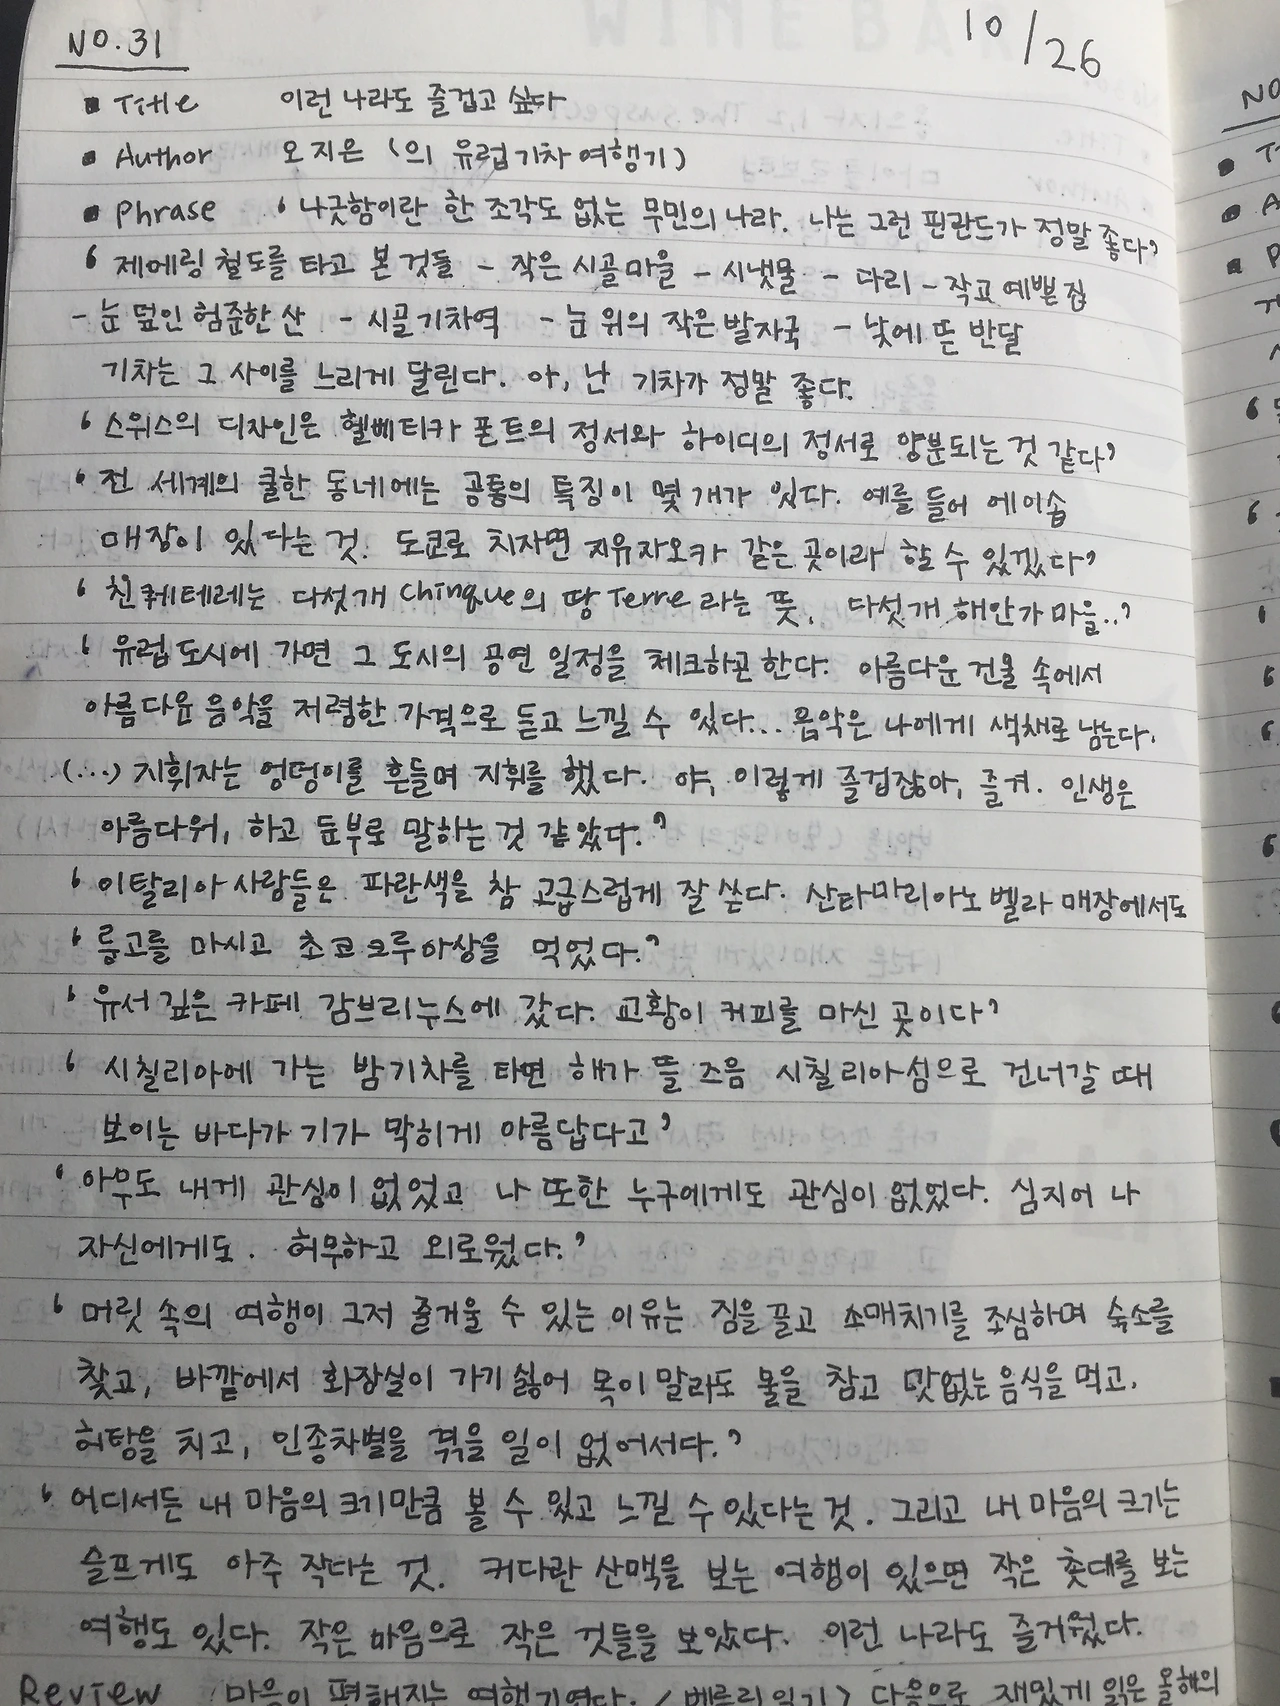 NO.31
10/26
▪ Title 이런 나라도 즐겁고 싶다
▪ Author 오지은 (의 유럽기차여행기)
▪ Phrase ‘나긋함이란 한 조각도 없는 무민의 나라. 나는 그런 핀란드가 정말 좋다’
‘제메링 철도를 타고 본 것들 - 작은 시골마을 - 시냇물 - 다리 - 작고 예쁜 집
- 눈 덮인 험준한 산 - 시골기차역 - 눈 위의 작은 발자국 - 낮에 뜬 반달
기차는 그 사이를 느리게 달린다. 아, 난 기차가 정말 좋다.
‘스위스의 디자인은 헬베티카 폰트의 정서와 하이디의 정서로 양분되는 것 같다’
‘전 세계의 쿨한 동네에는 공통의 특징이 몇 개가 있다. 예를 들어 에이솝
매장이 있다는 것. 도쿄로 치자면 지유가오카 같은 곳이라 할 수 있겠다’
‘친퀘테레는 다섯개 Chinque의 땅 Terre 라는 뜻. 다섯개 해안가 마을..’
‘유럽도시에 가면 그 도시의 공연 일정을 체크하곤 한다. 아름다운 건물 속에서
아름다운 음악을 저렴한 가격으로 듣고 느낄 수 있다... 음악은 나에게 색채로 남는다.
(...) 지휘자는 엉덩이를 흔들며 지휘를 했다. 야, 이렇게 즐겁잖아, 즐겨. 인생은
아름다워, 하고 둔부로 말하는 것 같았다.’
‘이탈리아 사람들은 파란색을 참 고급스럽게 잘 쓴다. 산타마리아노벨라 매장에서도
‘룽고를 마시고 초코크루아상을 먹었다.’
‘유서 깊은 카페 감브리누스에 갔다. 교황이 커피를 마신 곳이다’
‘시칠리아에 가는 밤기차를 타면 해가 뜰 즈음 시칠리아섬으로 건너갈 때
보이는 바다가 기가 막히게 아름답다고’
‘아무도 내게 관심이 없었고 나 또한 누구에게도 관심이 없었다. 심지어 나
자신에게도. 허무하고 외로웠다.’
‘머릿 속의 여행이 그저 즐거울 수 있는 이유는 짐을 끌고 소매치기를 조심하며 숙소를
찾고, 바깥에서 화장실이 가기 싫어 목이 말라도 물을 참고 맛없는 음식을 먹고,
허탕을 치고, 인종차별을 겪을 일이 없어서다.’
‘어디서든 내 마음의 크기만큼 볼 수 있고 느낄 수 있다는 것. 그리고 내 마음의 크기는
슬프게도 아주 작다는 것. 커다란 산맥을 보는 여행이 있으면 작은 촛대를 보는
여행도 있다. 작은 마음으로 작은 것들을 보았다. 이런 나라도 즐거웠다.
Review 마음이 편해지는 여행기였다. <베를린일기> 다음으로 재밌게 읽은 올해의